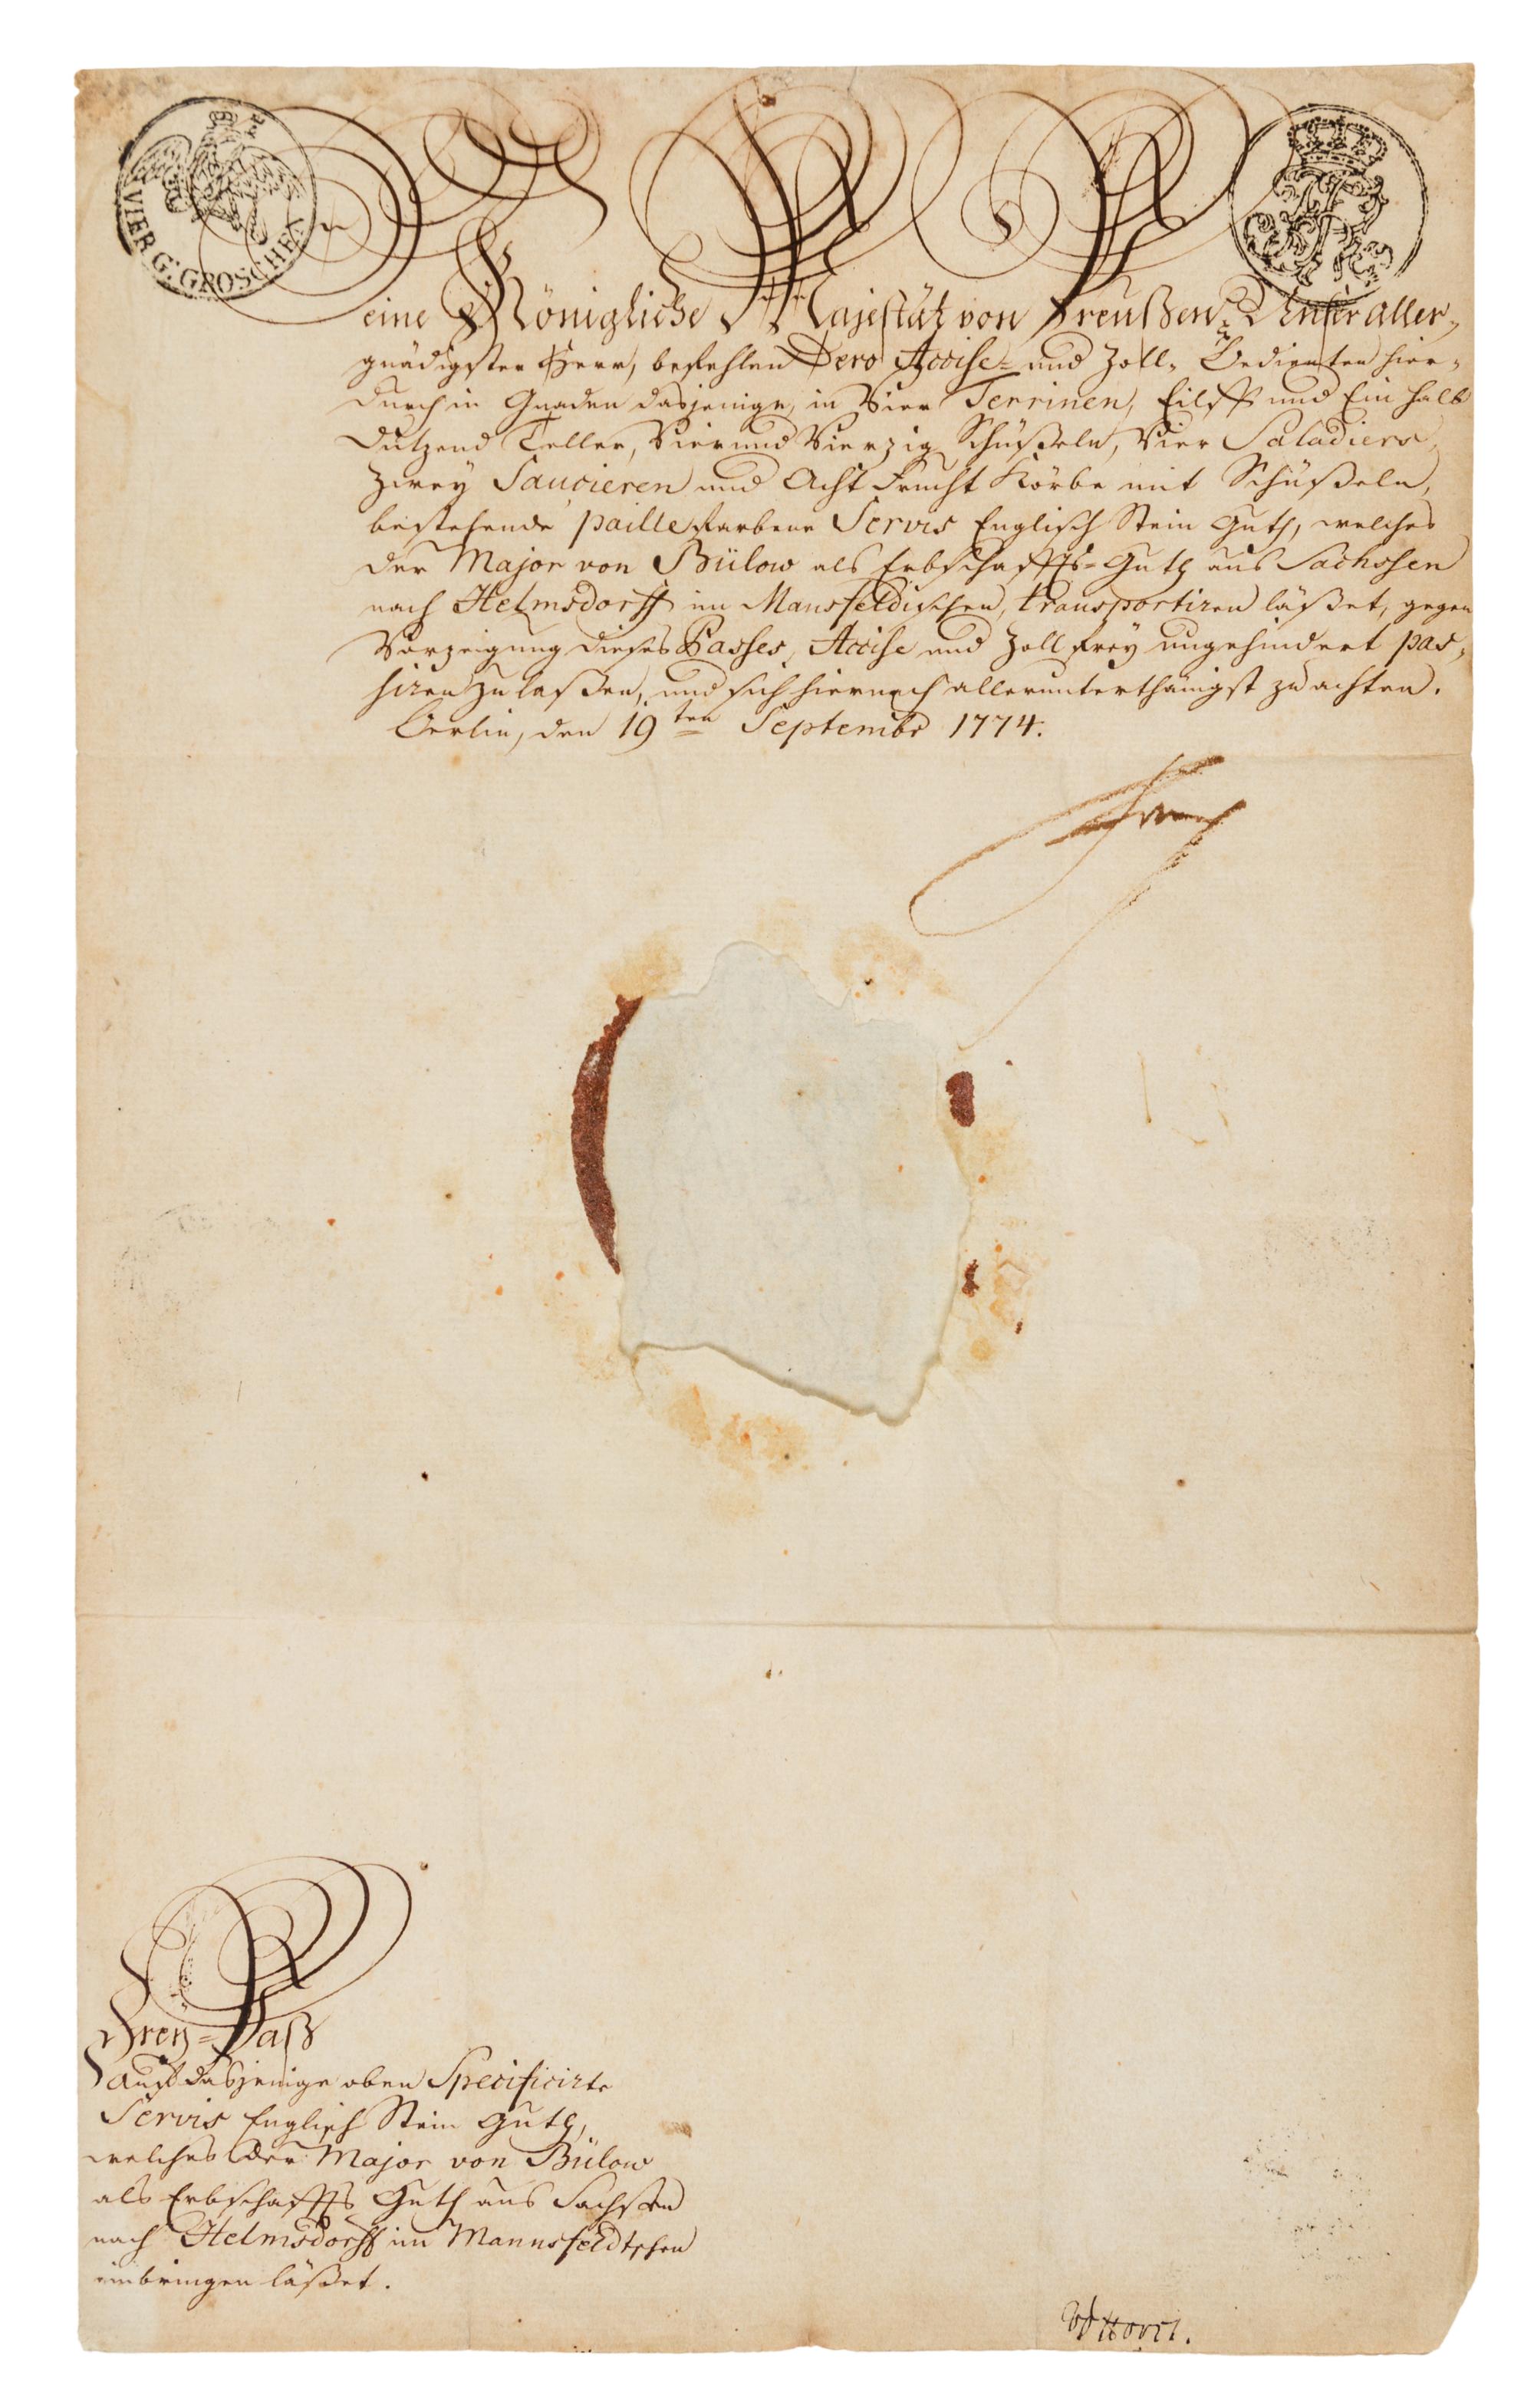 VIER G: GROSCHEN
FR
Seine Königliche Majestät von Preußen, Unser aller-
gnädigster Herr, befehlen Dero Accise- und Zoll-Bedienten hier-
durch in Gnaden dasjenige, in Vier Terrinen, Eilff und Ein halb
Dutzend Teller, Vier und Vierzig Schüßeln, Vier Saladiers,
Zwey Saucieren und Acht Frucht Körbe mit Schüßeln,
bestehende paille farbene Servis Englisch Stein Guth, welches
der Major von Bülow als Erbschaffts-Guth aus Sachssen
nach Helmsdorff im Mansfeldischen, transportiren läßet, gegen
Vorzeigung dieses Passes, Accise und Zoll frey ungehindert pas-
siren zu laßen, und sich hiernach allerunterthänigst zu achten.
Berlin, den 19ten Septembr 1774.
Frey-Paß
auf dasjenige oben Specificirte
Servis Englisch Stein Guth,
welches der Major von Bülow
als Erbschaffts Guth aus Sachßen
nach Helmsdorff im Mannsfeldtschen
einbringen läßet.